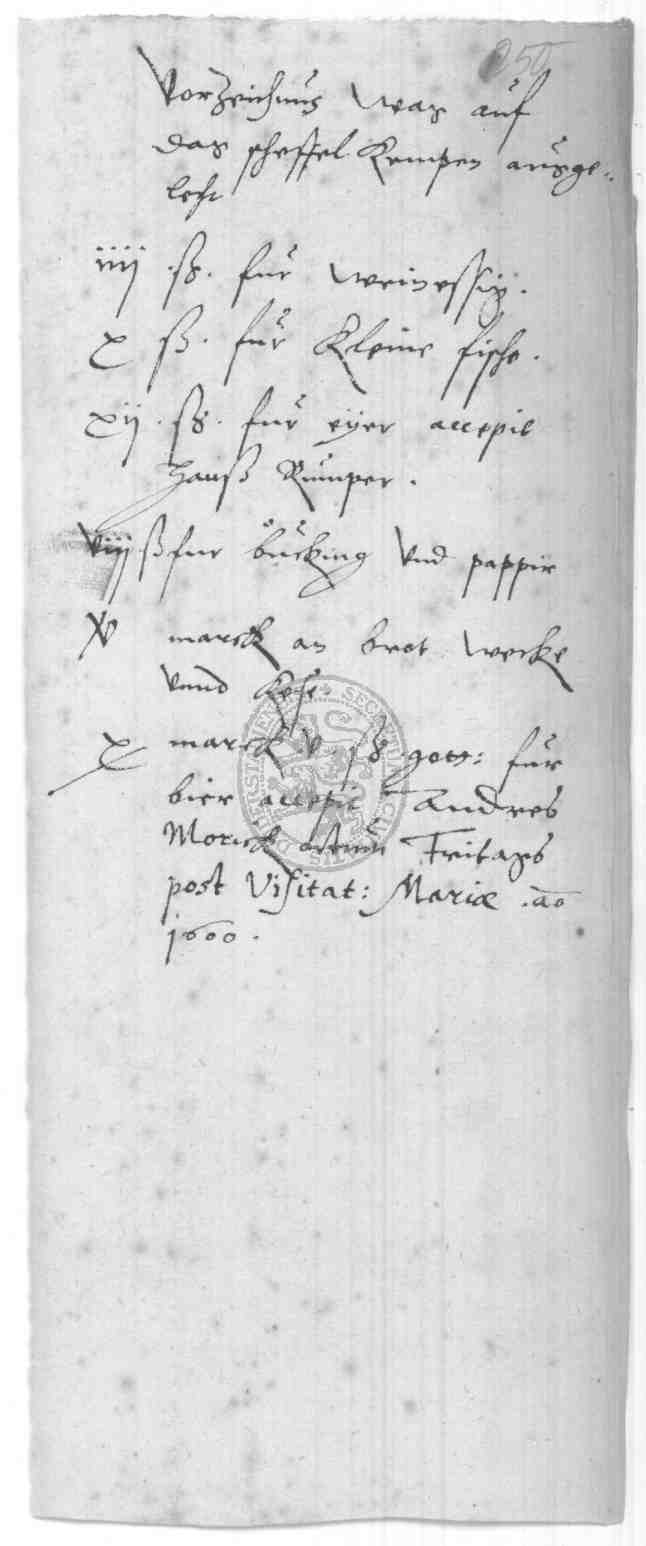 250
Vorzeichnus Was auf
das scheffel Kempen ausge-
lecht
iiij ß. fur Weinessig.
x ß. fur Kleine fische.
xij. ß. fur eyer accepit
Hanß Rumper.
viij ß fur bucking Vnd pappir
xv marck an brot wecke
vnnd Kese
x marck v ß gott: fur
bier accepit Andres
Morick Fritags
post Visitat: Mariæ. ao
1600.